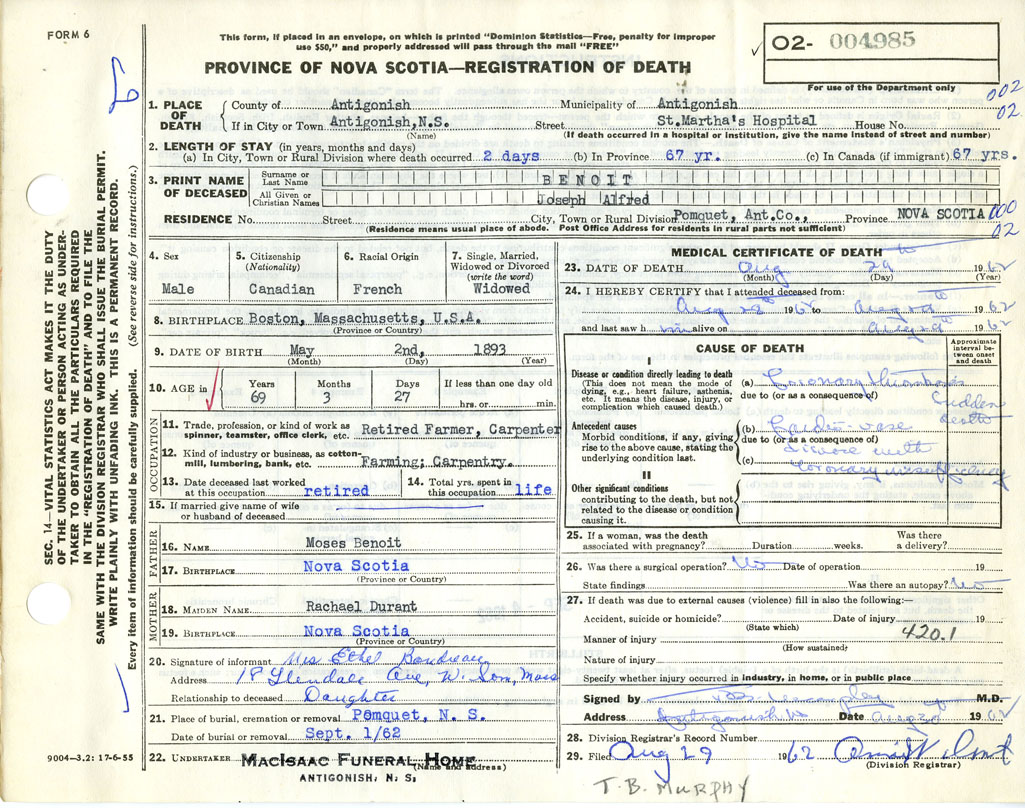 FORM 6
This form, if placed in an envelope, on which is printed "Dominion Statistics—Free, penalty for improper
use $50," and properly addressed will pass through the mail "FREE"
PROVINCE OF NOVA SCOTIA—REGISTRATION OF DEATH
O2- 004985
For use of the Department only
002
02.
SEC. 14—VITAL STATISTICS ACT MAKES IT THE DUTY
OF THE UNDERTAKER OR PERSON ACTING AS UNDER-
TAKER TO OBTAIN ALL THE PARTICULARS REQUIRED
IN THE "REGISTRATION OF DEATH" AND TO FILE THE
SAME WITH THE DIVISION REGISTRAR WHO SHALL ISSUE THE BURIAL PERMIT.
WRITE PLAINLY WITH UNFADING INK. THIS IS A PERMANENT RECORD.
Every item of information should be carefully supplied. (See reverse side for instructions.)
1. PLACE OF DEATH
County of Antigonish Municipality of Antigonish
If in City or Town Antigonish, N.S. Street St.Martha's Hospital House No.
(Name) (If death occurred in a hospital or institution, give the name instead of street and number)
2. LENGTH OF STAY (in years, months and days)
(a) In City, Town or Rural Division where death occurred 2 days (b) In Province 67 yr. (c) In Canada (if immigrant) 67 yrs.
3. PRINT NAME OF DECEASED
Surname or Last Name BENOIT
All Given or Christian Names Joseph Alfred
RESIDENCE No. Street City, Town or Rural Division Pomquet, Ant.Co., Province NOVA SCOTIA 000
(Residence means usual place of abode. Post Office Address for residents in rural parts not sufficient) 02
4. Sex
Male
5. Citizenship (Nationality)
Canadian
6. Racial Origin
French
7. Single, Married, Widowed or Divorced (write the word)
Widowed
8. BIRTHPLACE Boston, Massachusetts, U.S.A.
(Province or Country)
9. DATE OF BIRTH May 2nd, 1893
(Month) (Day) (Year)
10. AGE in
Years Months Days If less than one day old
69 3 27 hrs. or min.
OCCUPATION
11. Trade, profession, or kind of work as spinner, teamster, office clerk, etc. Retired Farmer, Carpenter
12. Kind of industry or business, as cotton-mill, lumbering, bank, etc. Farming; Carpentry.
13. Date deceased last worked at this occupation retired
14. Total yrs. spent in this occupation life
15. If married give name of wife or husband of deceased
FATHER
16. NAME Moses Benoit
17. BIRTHPLACE Nova Scotia
(Province or Country)
MOTHER
18. MAIDEN NAME Rachael Durant
19. BIRTHPLACE Nova Scotia
(Province or Country)
20. Signature of informant Mrs Ethel Boudreau
Address 18 Glendale Ave, W. Som, Mass
Relationship to deceased Daughter
21. Place of burial, cremation or removal Pomquet, N. S.
Date of burial or removal Sept. 1/62
22. UNDERTAKER MACISAAC FUNERAL HOME
(Name and address)
ANTIGONISH, N. S.
9004—3.2: 17-6-55
MEDICAL CERTIFICATE OF DEATH
23. DATE OF DEATH Aug 29th 1962
(Month) (Day) (Year)
24. I HEREBY CERTIFY that I attended deceased from:
Aug 28th 1962 to Aug 29th 1962
and last saw him alive on Aug 29th 1962
CAUSE OF DEATH
Approximate interval between onset and death
I
Disease or condition directly leading to death
(This does not mean the mode of dying, e.g., heart failure, asthenia, etc. It means the disease, injury, or complication which caused death.)
(a) Coronary thrombosis
due to (or as a consequence of)
Sudden death
Antecedent causes
Morbid conditions, if any, giving rise to the above cause, stating the underlying condition last.
(b) Cardio-vasc
due to (or as a consequence of)
disease with
(c) coronary insufficiency
II
Other significant conditions
contributing to the death, but not related to the disease or condition causing it.
25. If a woman, was the death associated with pregnancy? Duration weeks. Was there a delivery?
26. Was there a surgical operation? No Date of operation 19
State findings Was there an autopsy? No
27. If death was due to external causes (violence) fill in also the following:—
Accident, suicide or homicide? Date of injury 19
(State which)
420.1
Manner of injury
(How sustained)
Nature of injury
Specify whether injury occurred in industry, in home, or in public place
Signed by M.D.
Address Antigonish Date Aug 30 1962
28. Division Registrar's Record Number
29. Filed Aug 29 1962
(Division Registrar)
T. B. MURPHY